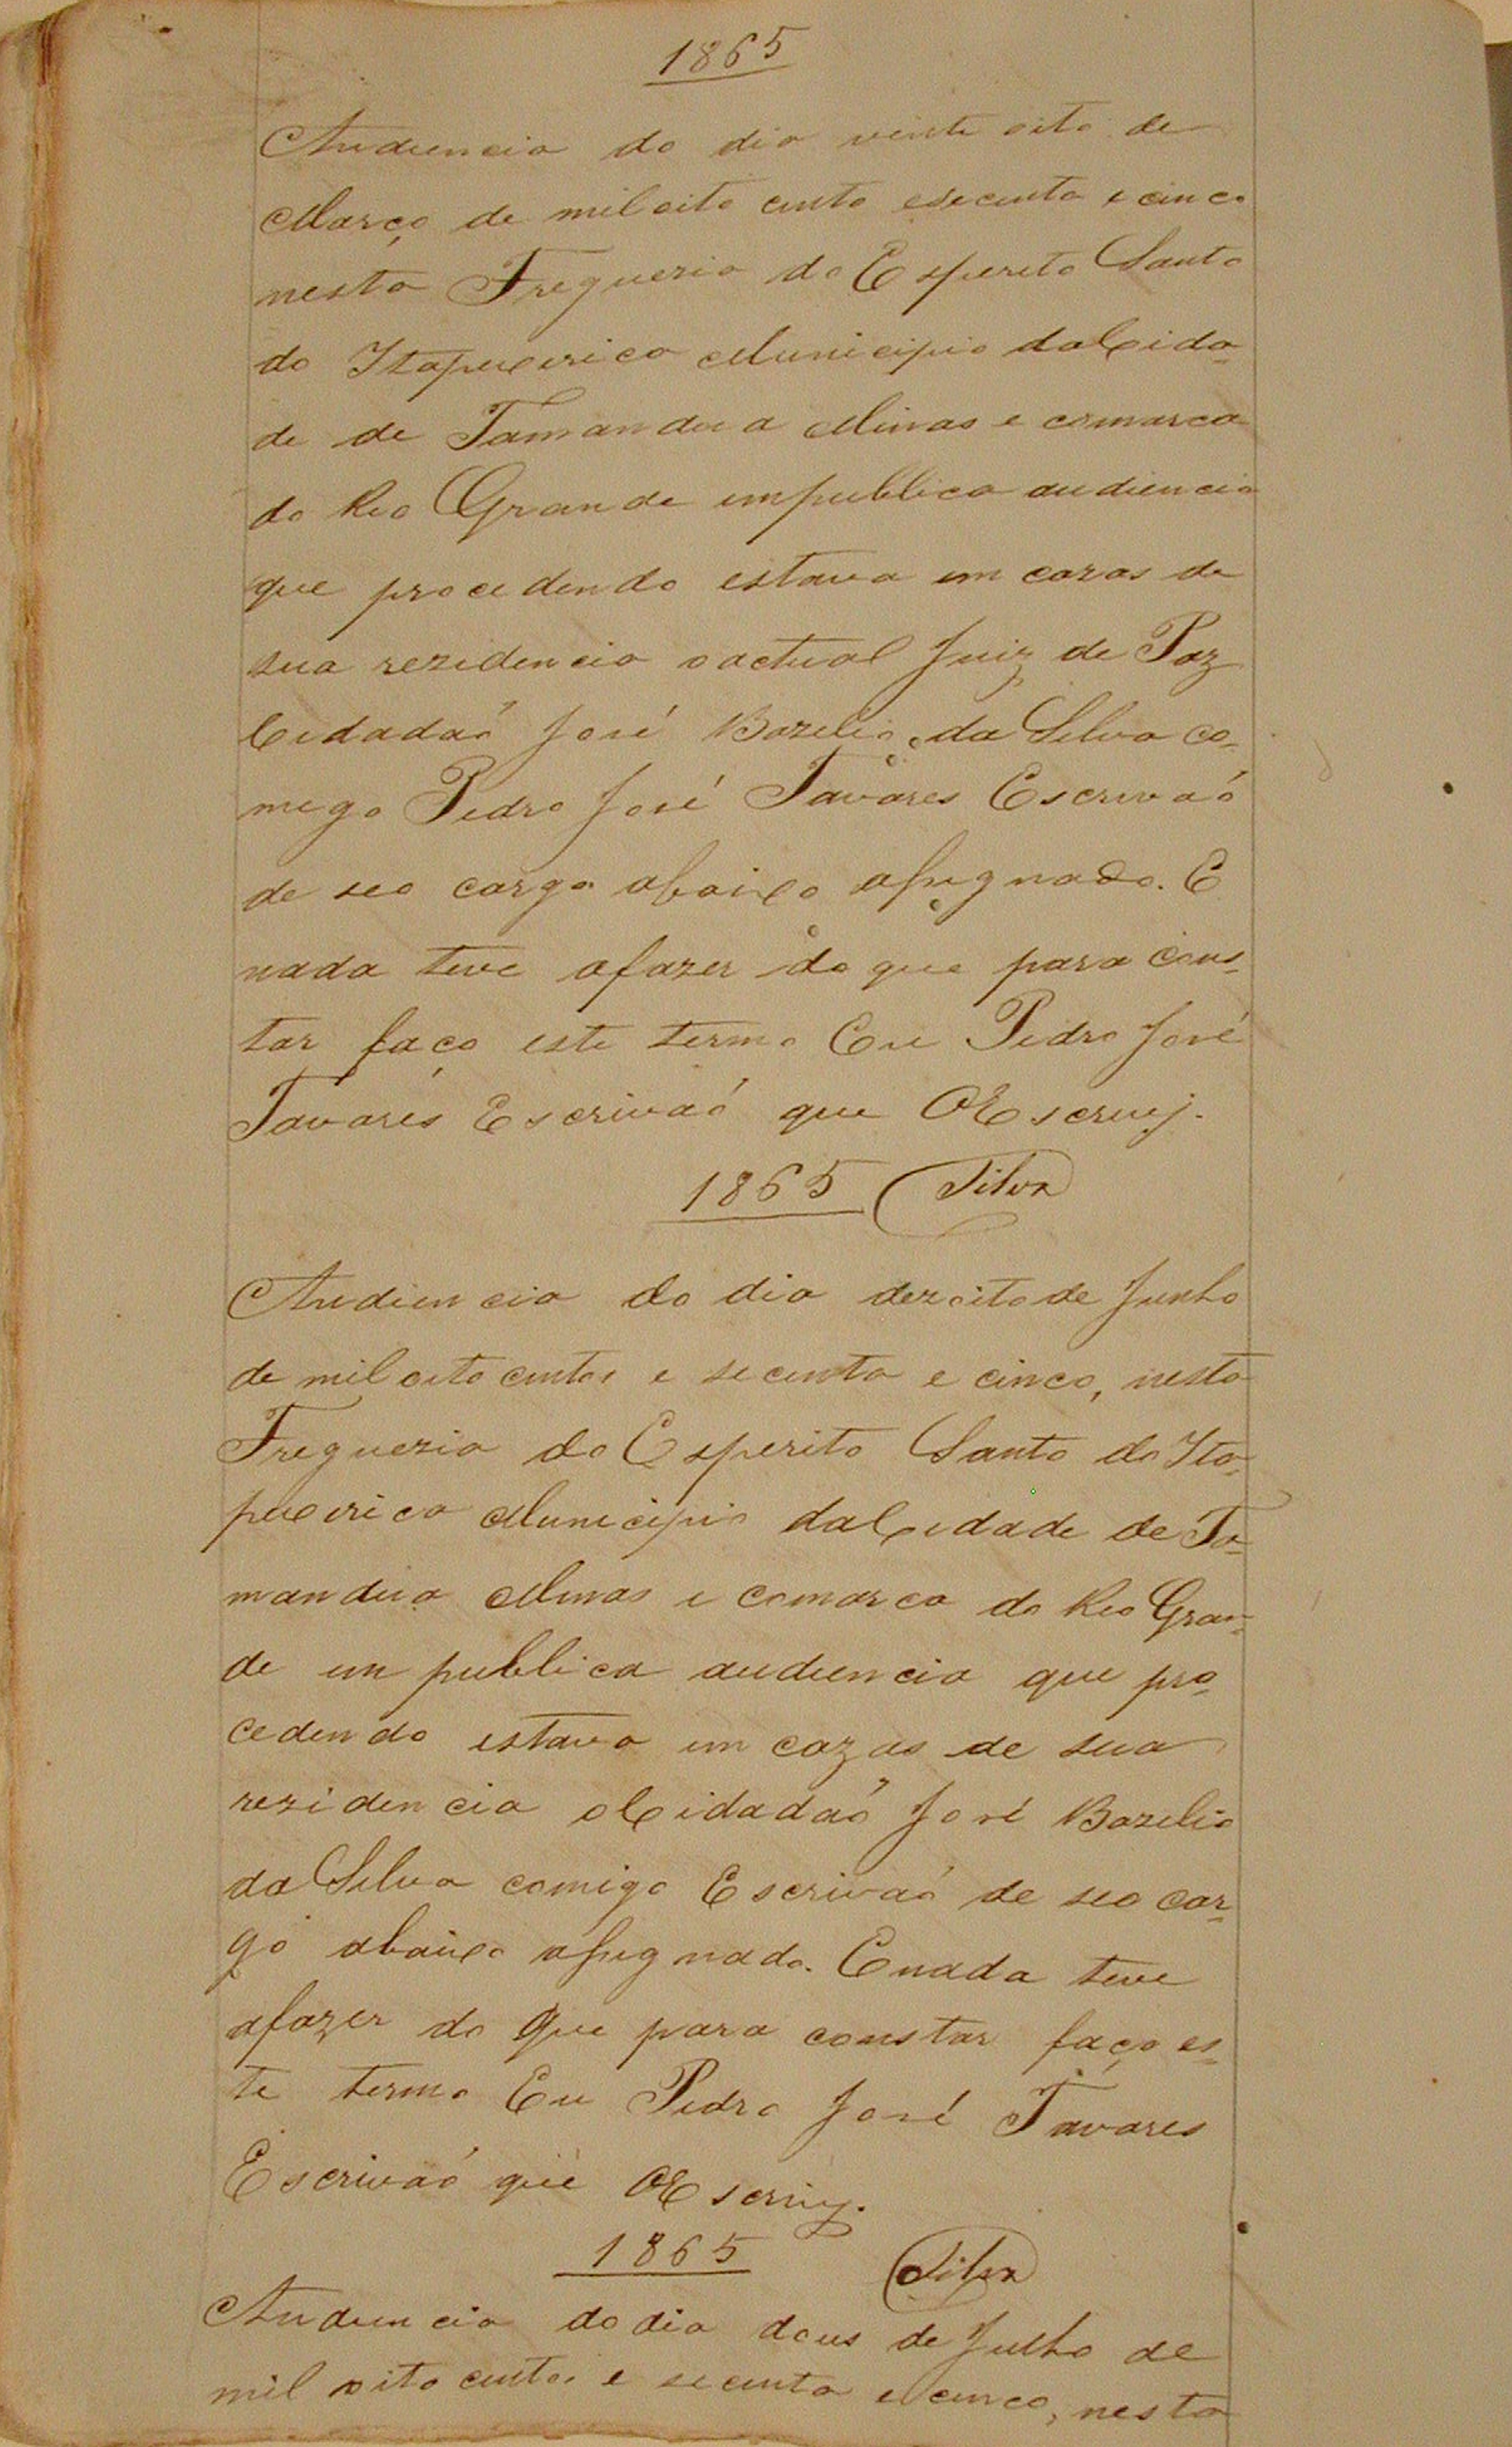 1865
Audiencia do dia vinte oito de
Março de mil oito cento esecenta e cinco
nesta Freguezia do Esperito Santo
do Itapucerica Municipio da Cida-
de de Tamandua Minas e comarca
do Rio Grande em publica audiencia
que procedendo estava em cazas de
sua rezidencia o actual Juiz de Paz
Cidadaó José Bazelio da Silva co-
mego Pedro José Tavares Escrivaó
de seo cargo abaixo assignado. E
nada teve afazer do que para cons-
tar faço este termo Eu Pedro José
Tavares Escrivaó que O Escrevj.
1865 Silva
Audiencia do dia dezoito de Junho
de mil oito centos e secenta e cinco, nesta
Freguezia do Esperito Santo do Ita-
pucerica Municipio da Cidade de Ta-
mandua Minas e comarca do Rio Gran-
de em publica audiencia que pro-
cedendo estava em cazas de sua
rezidencia o Cidadaó José Bazelio
da Silva comigo Escrivaó de seo car-
go abaixo assignado. E nada teve
afazer do que para constar faço es-
te termo Eu Pedro José Tavares
Escrivaó que O Escrivy.
1865 Silva
Audiencia do dia dous de Julho de
mil oito centos e secenta e cinco, nesta